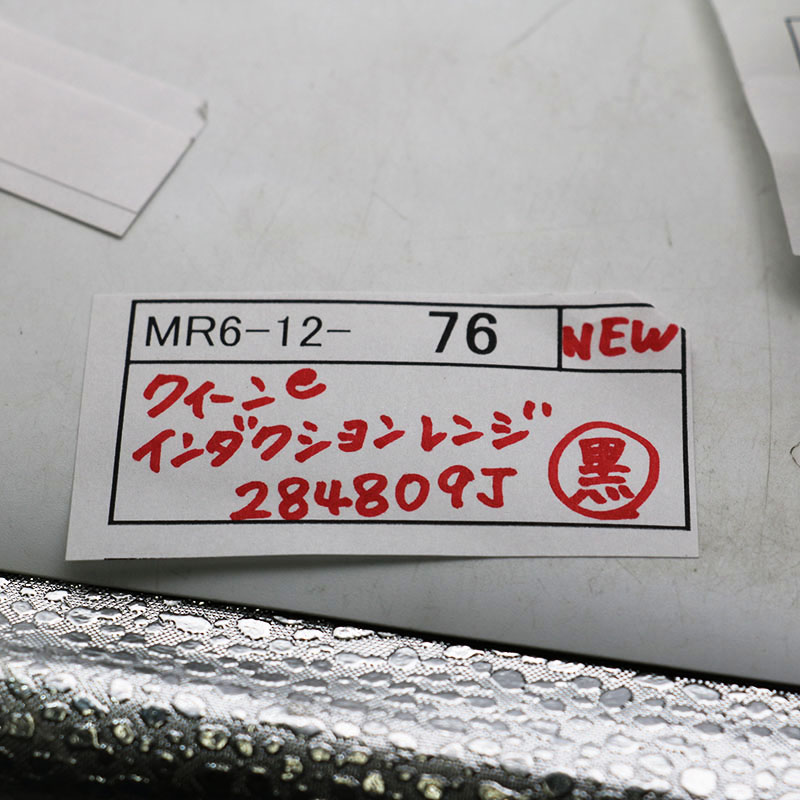 MR6-12- 76 NEW
クイーンe
インダクションレンジ
284809J 黒